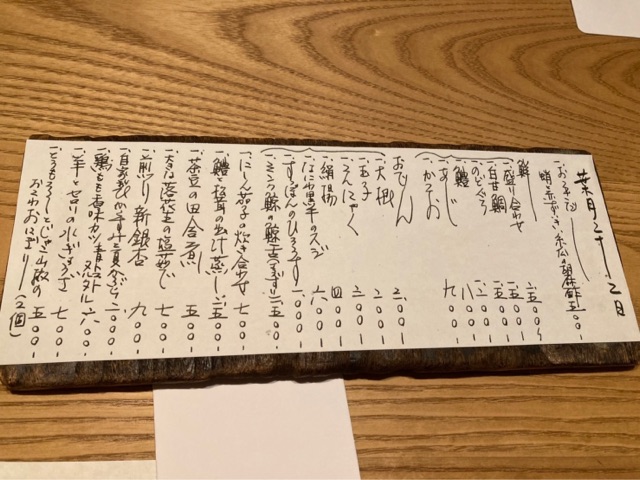 葉月二十二日
一、おつまみ
蛸、赤ずいき、糸瓜の胡麻酢 五〇〇-
鮮
一、盛り合わせ 二、五〇〇〜
一、白甘鯛 一、五〇〇-
一、のどぐろ 一、二〇〇-
一、鱧 一、八〇〇-
一、あじ 九〇〇-
一、かつお
おでん
一、大根 二〇〇-
一、玉子 二〇〇-
一、こんにゃく 二〇〇-
一、絹揚 四〇〇-
一、はこわ黒牛のスジ 六〇〇-
一、すっぽんのひろうす 一、〇〇〇-
一、ミンク鯨の鯨舌(さえずり) 一、五〇〇-
一、にしん茄子の炊き合わせ 七〇〇-
一、鱧と松茸の出汁蒸し 二、五〇〇-
一、茶豆の田舎煮 五〇〇-
一、大きな落花生の塩茹で 七〇〇-
一、煎り新銀杏 九〇〇-
一、自家製からすみ 二、〇〇〇-
一、鶏もも香味カツ 青トウガラシタルタル 六〇〇-
一、羊とセロリの水ぎょうざ 七〇〇-
一、とうもろこしとじゃこ山椒の
おこわおにぎり(2個) 五〇〇-